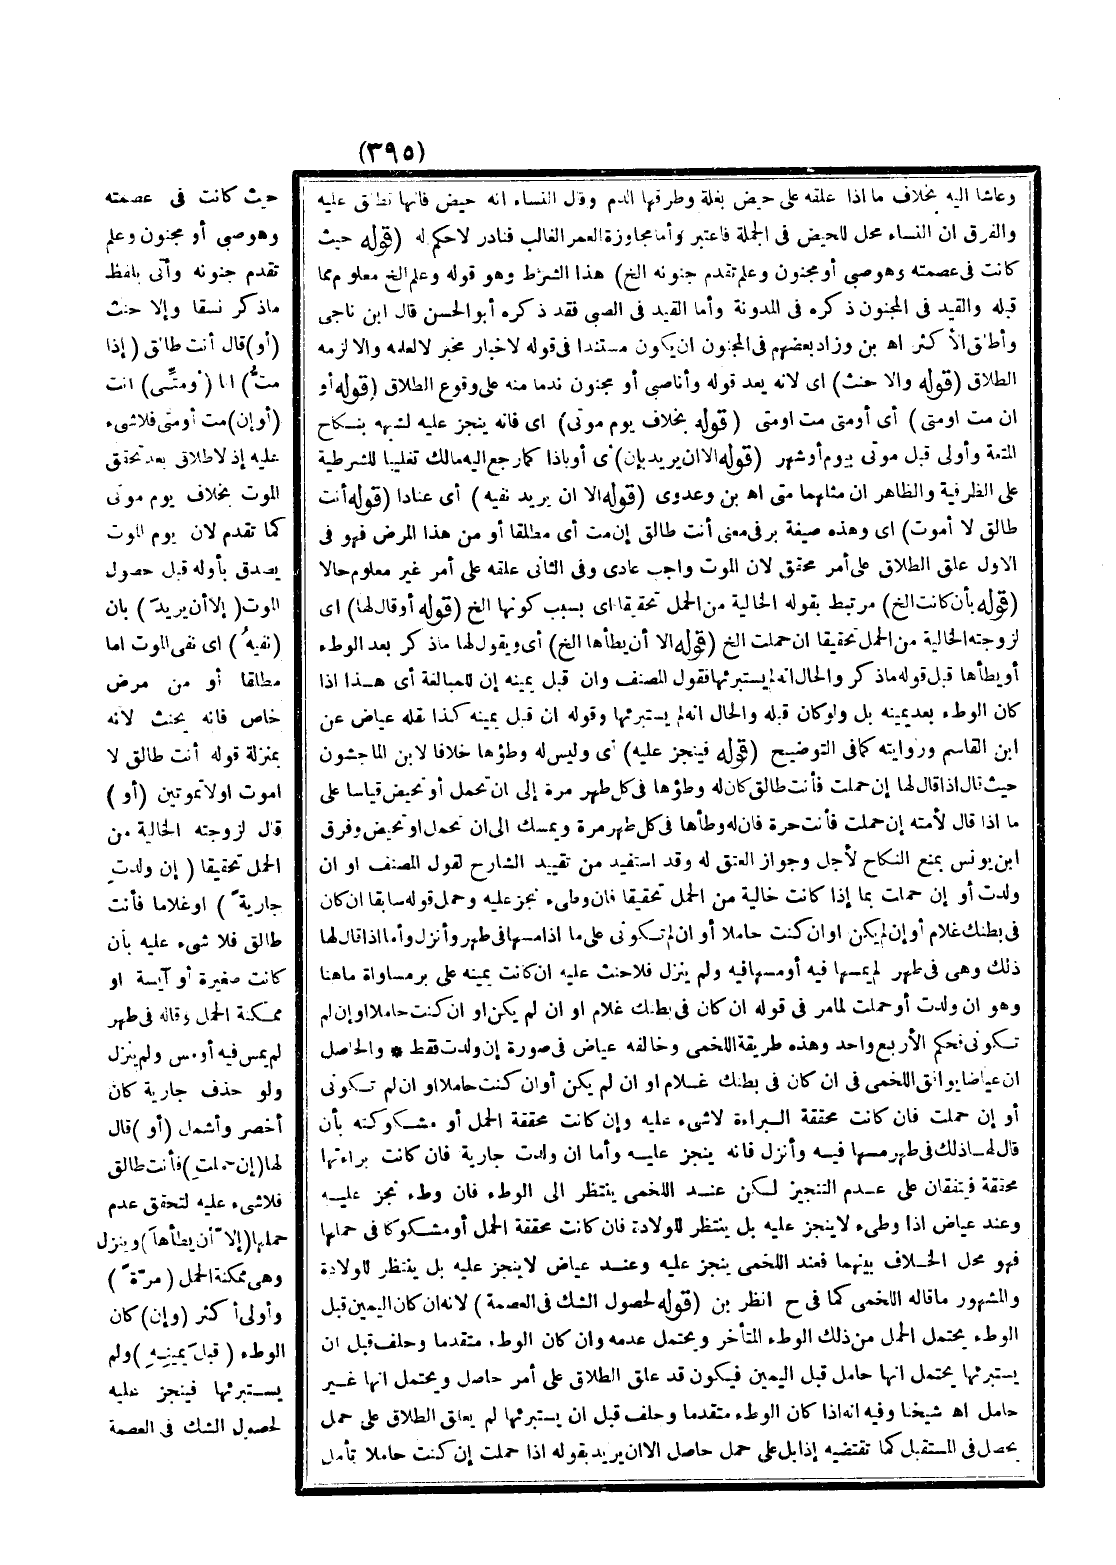 (٣٩٥)
وعاشا اليه بخلاف ما اذا علقه على حيض بغلة وطرقها الدم وقال النساء انه حيض فانها تطلق عليه
والفرق ان النساء محل للحيض فى الجملة فاعتبر وأما مجاوزة العمر الغالب فنادر لا حكم له (قوله حيث
كانت فى عصمته وهو صبى أو مجنون وعلم تقدم جنونه الخ) هذا الشرط وهو قوله وعلم الخ معلوم مما
قبله والقيد فى المجنون ذكره فى المدونة وأما القيد فى الصبى فقد ذكره أبو الحسن قال ابن ناجى
وأطلق الأكثر اه بن وزاد بعضهم فى المجنون ان يكون مستندا فى قوله لاخبار مخبر لا لعلمه والا لزمه
الطلاق (قوله والا حنث) اى لانه يعد قوله وأنا صبى أو مجنون ندما منه على وقوع الطلاق (قوله أو
ان مت او متى) أى أو متى مت او متى (قوله بخلاف يوم موتى) اى فانه ينجز عليه لشبهه بنكاح
المتعة وأولى قبل موتى بيوم أو شهر (قوله الا ان يريد بإن) أى أو باذا كما رجع اليه مالك تغليبا للشرطية
على الظرفية والظاهر ان مثلهما متى اه بن وعدوى (قوله الا ان يريد نفيه) أى عنادا (قوله أنت
طالق لا أموت) اى وهذه صيغة بر فى معنى أنت طالق إن مت أى مطلقا أو من هذا المرض فهو فى
الاول علق الطلاق على أمر محقق لان الموت واجب عادى وفى الثانى علقه على أمر غير معلوم حالا
(قوله بأن كانت الخ) مرتبط بقوله الخالية من الحمل تحقيقا اى بسبب كونها الخ (قوله أو قال لها) اى
لزوجته الخالية من الحمل تحقيقا ان حملت الخ (قوله الا أن يطأها الخ) أى ويقول لها ما ذكر بعد الوطء
أو يطأها قبل قوله ما ذكر والحال انه لم يستبرئها فقول المصنف وان قبل يمينه إن للمبالغة أى هذا اذا
كان الوطء بعد يمينه بل ولو كان قبله والحال انه لم يستبرئها وقوله ان قبل يمينه كذا نقله عياض عن
ابن القاسم وروايته كما فى التوضيح (قوله فينجز عليه) أى وليس له وطؤها خلافا لابن الماجشون
حيث قال اذا قال لها إن حملت فأنت طالق كان له وطؤها فى كل طهر مرة إلى ان تحمل أو تحيض قياسا على
ما اذا قال لأمته إن حملت فأنت حرة فان له وطأها فى كل طهر مرة ويمسك الى ان تحمل او تحيض وفرق
ابن يونس بمنع النكاح لأجل وجواز العتق له وقد استفيد من تقييد الشارح لقول المصنف او ان
ولدت أو إن حملت بما إذا كانت خالية من الحمل تحقيقا فان وطىء نجز عليه وحمل قوله سابقا ان كان
فى بطنك غلام أو إن لم يكن او ان كنت حاملا أو ان لم تكونى على ما اذا مسها فى طهر وأنزل وأما اذا قال لها
ذلك وهى فى طهر لم يمسها فيه أو مسها فيه ولم ينزل فلا حنث عليه ان كانت يمينه على بر مساواة ما هنا
وهو ان ولدت أو حملت لما مر فى قوله ان كان فى بطنك غلام او ان لم يكن او ان كنت حاملا او إن لم
تكونى فحكم الأربع واحد وهذه طريقة اللخمى وخالفه عياض فى صورة إن ولدت فقط * والحاصل
ان عياضا يوافق اللخمى فى ان كان فى بطنك غلام او ان لم يكن أو ان كنت حاملا او ان لم تكونى
أو إن حملت فان كانت محققة البراءة لا شىء عليه وإن كانت محققة الحمل أو مشكوكته بأن
قال لها ذلك فى طهر مسها فيه وأنزل فانه ينجز عليه وأما ان ولدت جارية فان كانت براءتها
محققة فيتفقان على عدم التنجيز لكن عند اللخمى ينتظر الى الوطء فان وطء نجز عليه
وعند عياض اذا وطىء لا ينجز عليه بل ينتظر للولادة فان كانت محققة الحمل أو مشكوكا فى حملها
فهو محل الخلاف بينهما فعند اللخمى ينجز عليه وعند عياض لا ينجز عليه بل ينتظر للولادة
والمشهور ما قاله اللخمى كما فى ح انظر بن (قوله لحصول الشك فى العصمة) لانه ان كان اليمين قبل
الوطء يحتمل الحمل من ذلك الوطء المتأخر ويحتمل عدمه وان كان الوطء متقدما وحلف قبل ان
يستبرئها يحتمل انها حامل قبل اليمين فيكون قد علق الطلاق على أمر حاصل ويحتمل انها غير
حامل اه شيخنا وفيه انه اذا كان الوطء متقدما وحلف قبل ان يستبرئها لم يعلق الطلاق على حمل
يحصل فى المستقبل كما تقتضيه إذا بل على حمل حاصل الا ان يريد بقوله اذا حملت إن كنت حاملا تأمل
حيث كانت فى عصمته
وهو صبى أو مجنون وعلم
تقدم جنونه وأتى بلفظ
ما ذكر نسقا وإلا حنث
(أو) قال أنت طالق (إذا
متُّ) انا (أو متى) انت
(أو إن) مت أو متى فلا شىء
عليه إذ لا طلاق بعد تحقق
الموت بخلاف يوم موتى
كما تقدم لان يوم الموت
يصدق بأوله قبل حصول
الموت (إلا أن يريدَ) بان
(نفيهُ) اى نفى الموت اما
مطلقا أو من مرض
خاص فانه يحنث لانه
بمنزلة قوله أنت طالق لا
اموت اولا تموتين (أو)
قال لزوجته الخالية من
الحمل تحقيقا (إن ولدتِ
جاريةً) او غلاما فأنت
طالق فلا شىء عليه بأن
كانت صغيرة أو آيسة او
ممكنة الحمل وقاله فى طهر
لم يمس فيه أو مس ولم ينزل
ولو حذف جارية كان
أخصر وأشمل (أو) قال
لها (إن حملتِ) فأنت طالق
فلا شىء عليه لتحقق عدم
حملها (إلا أن يطأها) وينزل
وهى ممكنة الحمل (مرّةً)
وأولى أكثر (وإن) كان
الوطء (قبلَ يمينِهِ) ولم
يستبرئها فينجز عليه
لحصول الشك فى العصمة